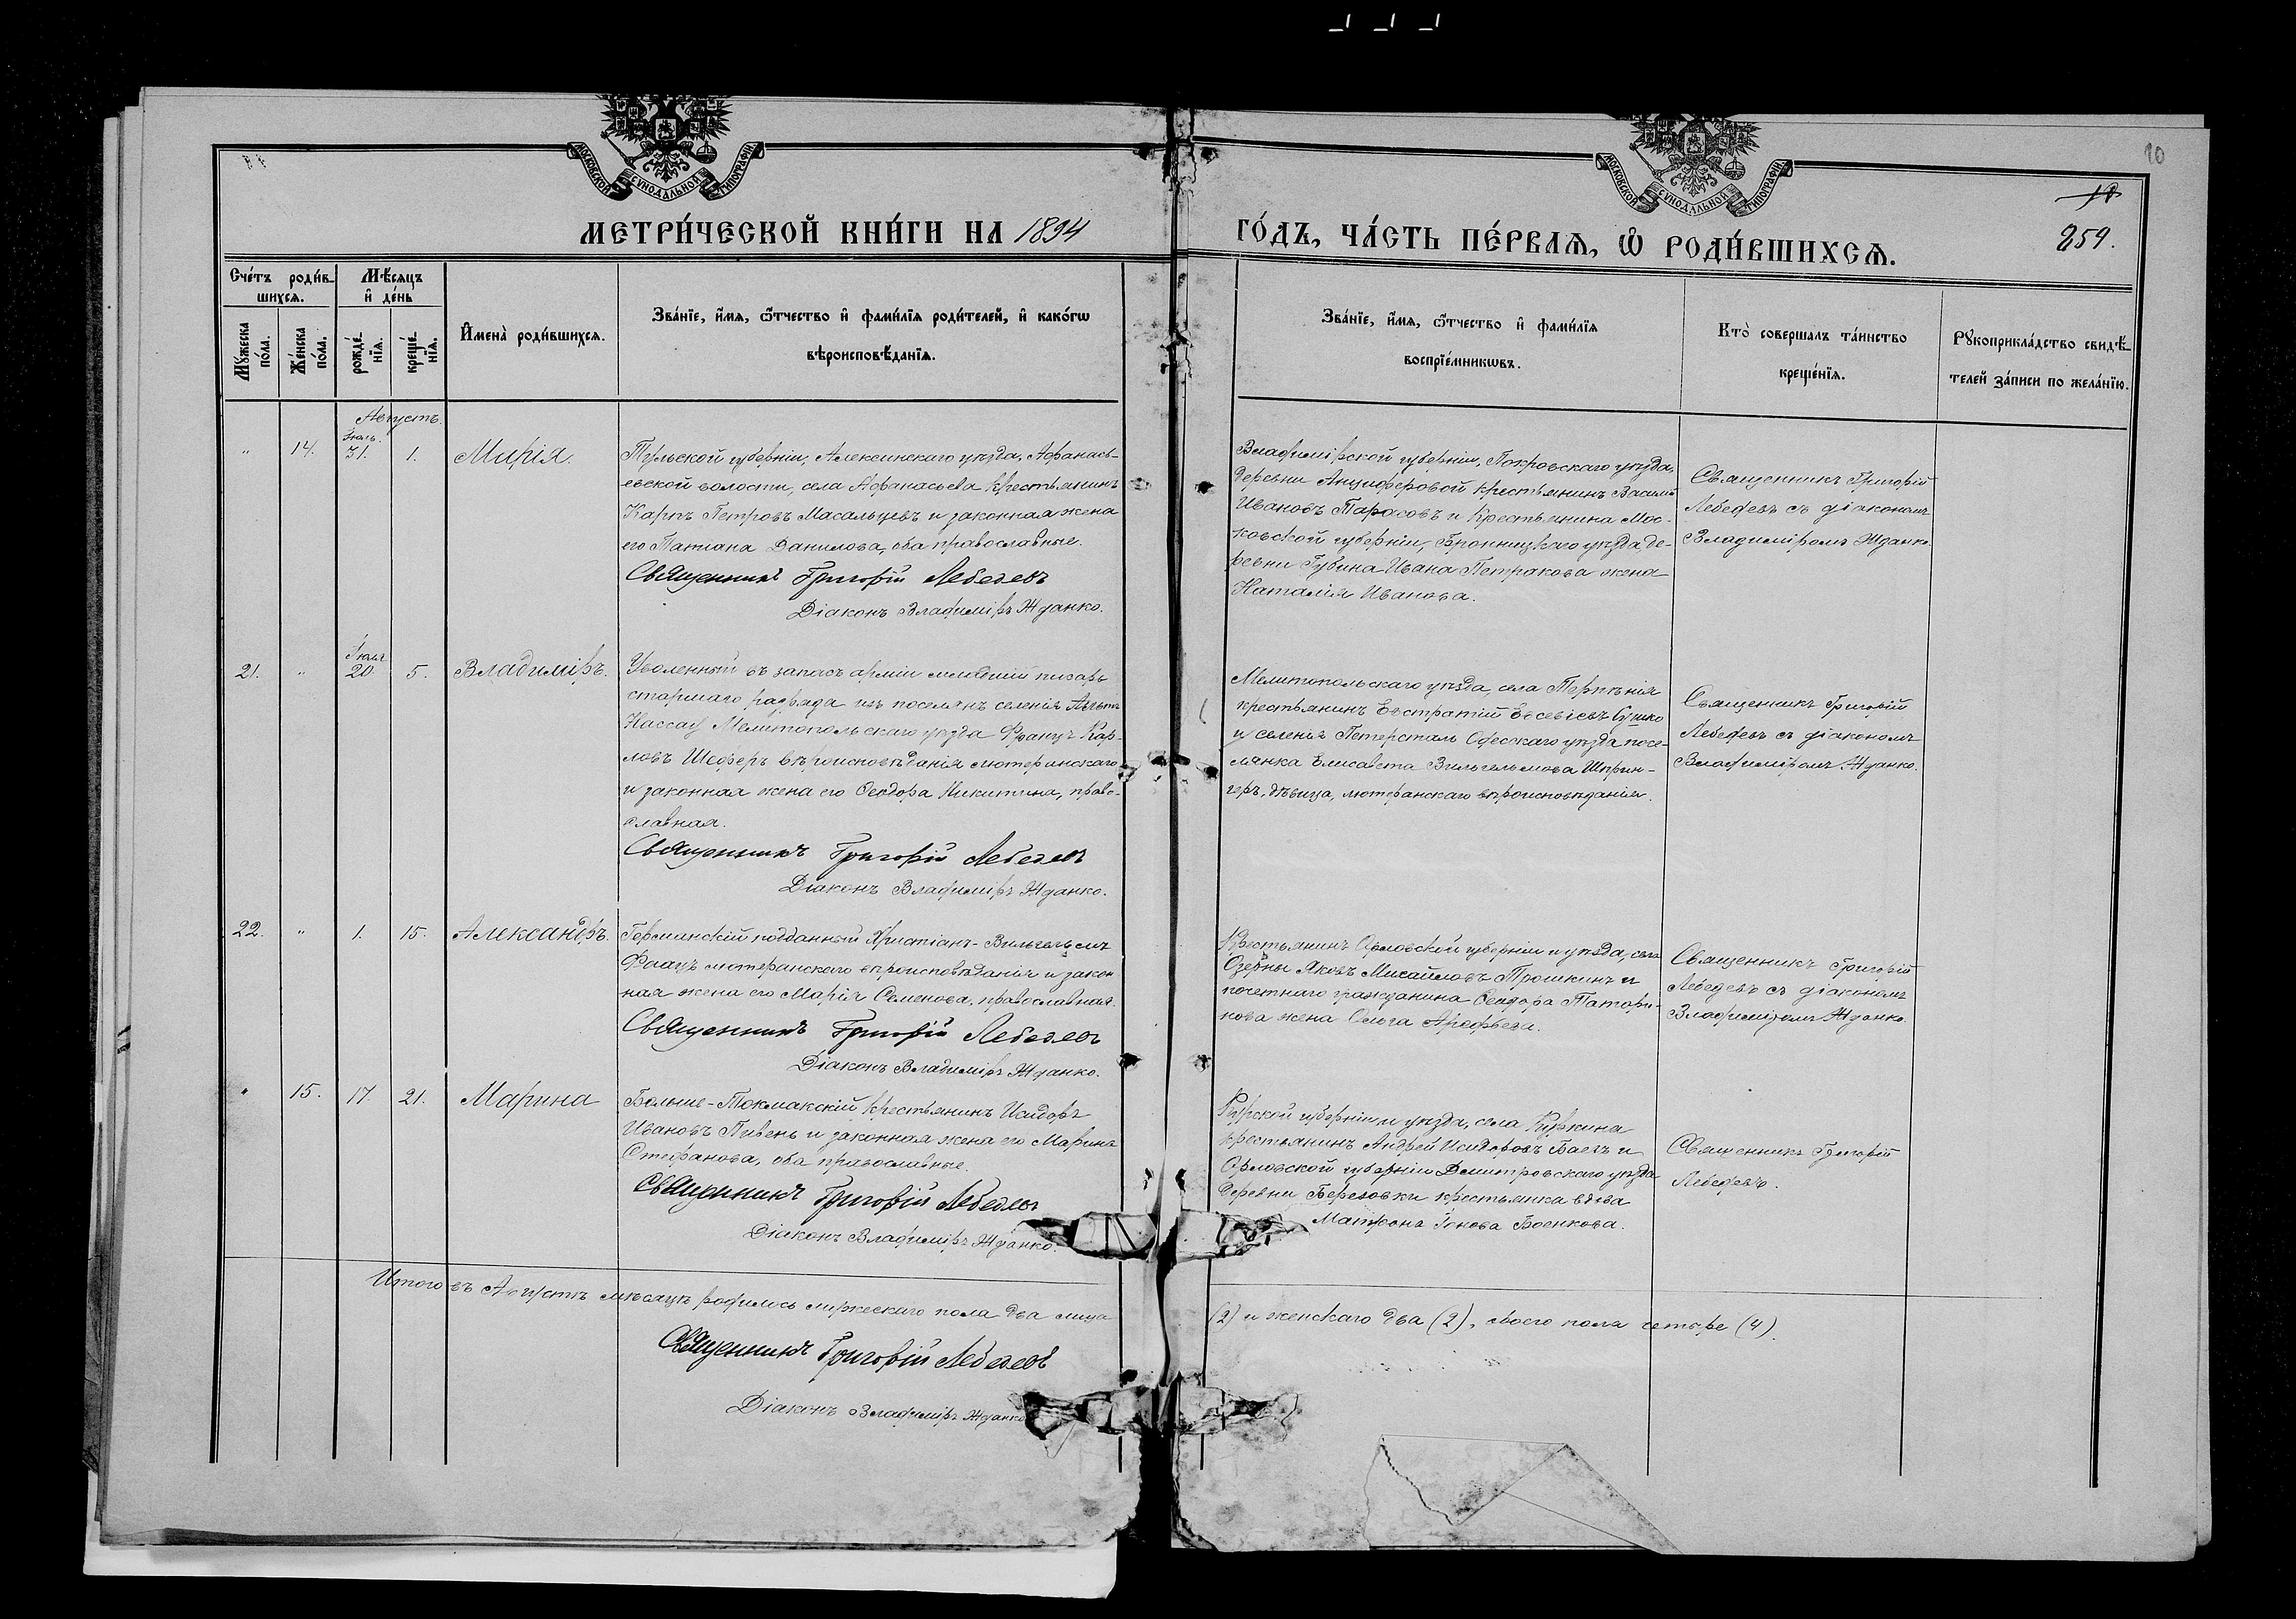 10
МОСКОВСКОЙ СѴНОДАЛЬНОЙ ТИПОГРАФІИ
МОСКОВСКОЙ СѴНОДАЛЬНОЙ ТИПОГРАФІИ
259.
МЕТРИ́ЧЕСКОЙ КНИ́ГИ НА 1894
ГО́ДЪ, ЧА́СТЬ ПЕ́РВАѦ, Ѡ҆ РОДИ́ВШИХСѦ.
Сче́тъ роди́в-
шихсѧ.
Мꙋ́жеска по́ла.
Же́нска по́ла.
Мѣ́сѧцъ
и҆ де́нь
рожде́-нїѧ.
креще́-нїѧ.
И҆мена̀ роди́вшихсѧ.
Зва́нїе, и҆́мѧ, ѻ҆́тчество и҆ фами́лїѧ роди́телей, и҆ како́гѡ
вѣроисповѣ́данїѧ.
Зва́нїе, и҆́мѧ, ѻ҆́тчество и҆ фами́лїѧ
воспрїе́мникѡвъ.
Кто̀ соверша́лъ та́инство
креще́нїѧ.
Рꙋкоприкла́дство свидѣ́-
телей за́писи по жела́нїю.
Августъ.
" 14. Іюль. 31. 1. Марія.
Тульской губерніи, Алексинскаго уѣзда, Афанась-
евской волости, села Афанасьева крестьянинъ
Карпъ Петровъ Масальцевъ и законная жена
его Татіана Данилова, оба православные.
Священникъ Григорій Лебедевъ
Діаконъ Владиміръ Жданко.
Владимірской губерніи, Покровскаго уѣзда,
деревни Анциферовой крестьянинъ Василій
Ивановъ Тарасовъ и крестьянина Мос-
ковской губерніи, Бронницкаго уѣзда, де-
ревни Губина Ивана Петракова жена
Наталія Иванова.
Священникъ Григорій
Лебедевъ съ діакономъ
Владиміромъ Жданко.
21. " Іюля 20. 5. Владиміръ.
Уволенный въ запасъ арміи младшій писарь
старшаго разряда изъ поселянъ селенія Альтъ
Нассау Мелитопольскаго уѣзда Францъ Кар-
ловъ Шеферъ вѣроисповѣданія лютеранскаго
и законная жена его Ѳеодора Никитина, право-
славная.
Священникъ Григорій Лебедевъ
Діаконъ Владиміръ Жданко.
Мелитопольскаго уѣзда, села Терпѣнія
крестьянинъ Евстратій Евсевіевъ
и селенія Петерсталь Одесскаго уѣзда посе-
лянка Елисавета Вильгельмова Шприн-
геръ, дѣвица, лютеранскаго вѣроисповѣданія.
Священникъ Григорій
Лебедевъ съ діакономъ
Владиміромъ Жданко.
22. " 1. 15. Александръ.
Германскій подданный Христіанъ-Вильгельмъ
лютеранскаго вѣроисповѣданія и закон
ная жена его Марія Семенова, православная.
Священникъ Григорій Лебедевъ
Діаконъ Владиміръ Жданко.
Крестьянинъ Орловской губерніи и уѣзда, села
Озерны Яковъ Михайловъ Трошкинъ и
почетнаго гражданина Ѳеодора Татари-
нова жена Ольга Арефьева.
Священникъ Григорій
Лебедевъ съ діакономъ
Владиміромъ Жданко.
" 15. 17. 21. Марина
Больше-Токмакскій крестьянинъ Исидоръ
Ивановъ Пивень и законная жена его Марина
Стефанова, оба православные.
Священникъ Григорій Лебедевъ
Діаконъ Владиміръ Жданко.
Курской губерніи и уѣзда, села
крестьянинъ Андрей Исидоровъ Баевъ и
Орловской губерніи Дмитровскаго уѣзда
деревни Березовки крестьянка вдова
Матрона Іонова Боенкова.
Священникъ Григорій
Лебедевъ.
Итого въ Августѣ мѣсяцѣ родилось мужескаго пола два лица
(2) и женскаго два (2), обоего пола четыре (4).
Священникъ Григорій Лебедевъ
Діаконъ Владиміръ Жданко